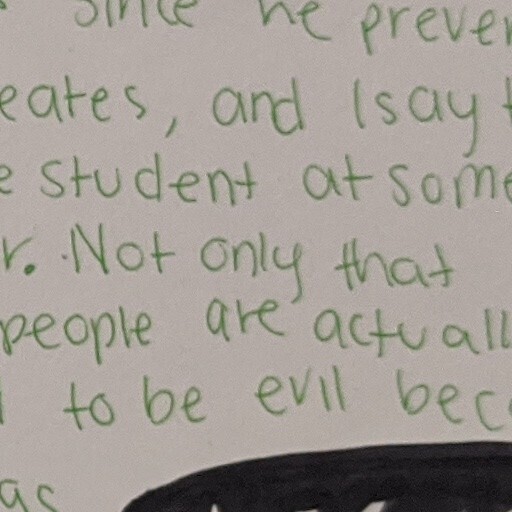 since he preven
eates, and I say t
e student at some
r. Not only that
people are actuall
to be evil bec
as